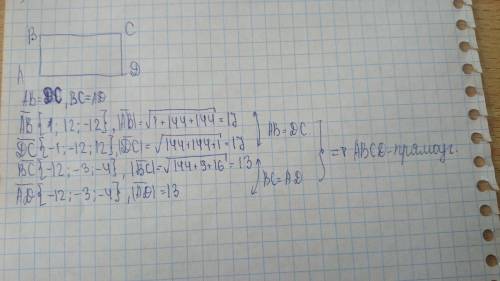 B C
A D
AB=DC, BC=AD
AB{1; 12; -12}, |AB|=√1+144+144=17
DC{-1; -12; 12}, |DC|=√144+144+1=17
BC{-12; -3; -4}, |BC|=√144+9+16=13
AD{-12; -3; -4}, |AD|=13
AB=DC
BC=AD
=> ABCD-прямоуг.